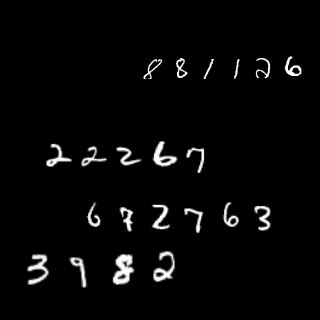 881126
22267
672763
3982